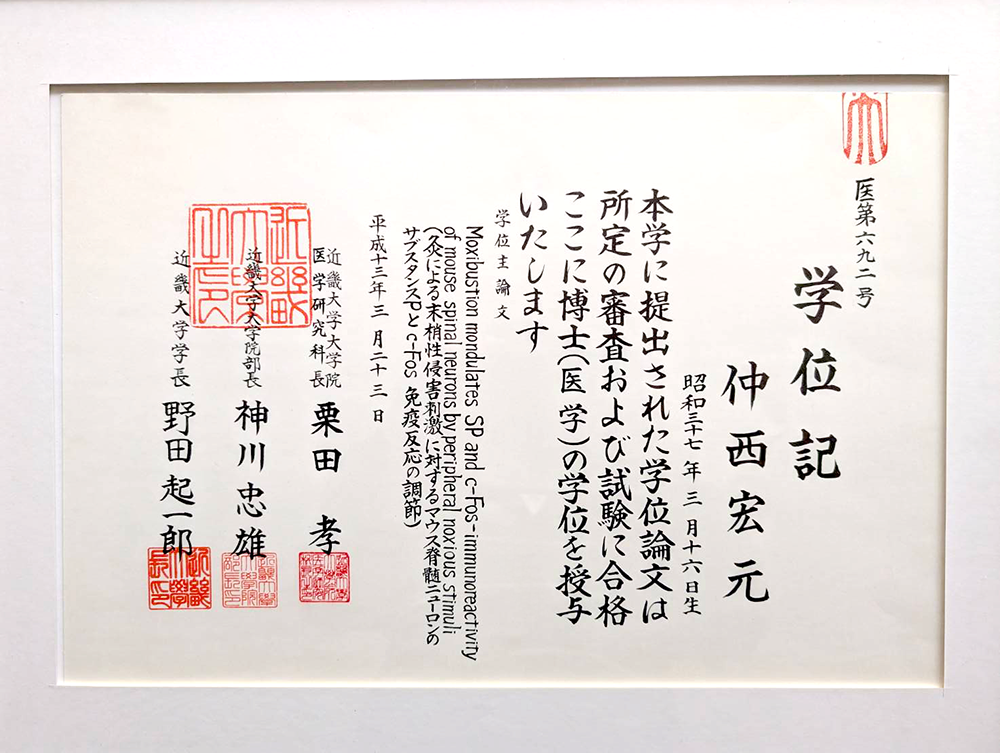 医第六九二号
学位記
仲西宏元
昭和三十七年三月十六日生
本学に提出された学位論文は
所定の審査および試験に合格
ここに博士(医学)の学位を授与
いたします
学位主論文
Moxibustion mondulates SP and c-Fos-immunoreactivity
of mouse spinal neurons by peripheral noxious stimuli
(灸による末梢性侵害刺激に対するマウス脊髄ニューロンの
サブスタンスPとc-Fos 免疫反応の調節)
平成十三年三月二十三日
近畿大学大学院
医学研究科長 栗田 孝
近畿大学大学院部長 神川忠雄
近畿大学学長 野田起一郎
近畿
大学
之印